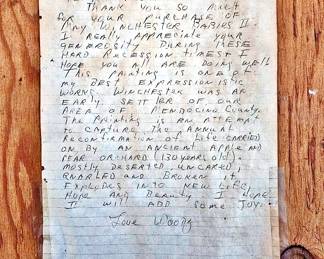 THANK YOU SO MUCH
FOR YOUR PURCHASE OF
"MY WINCHESTER BABIES II.
I REALLY APPRECIATE YOUR
GENEROSITY DURING THESE
HARD RECESSION TIMES. I
HOPE YOU ALL ARE DOING WELL
THIS PAINTING IS ONE OF
MY BEST EXPRESSIONISTIC
WORKS. WINCHESTER WAS AN
EARLY SETTLER OF OUR
AREA OF MENDOCINO COUNTY.
THE PAINTING IS AN ATTEMPT
TO CAPTURE THE ANNUAL
RECONFIRMATION OF LIFE CARRIED
ON BY AN ANCIENT APPLE AND
PEAR ORCHARD (130 YEARS OLD).
MOSTLY DESERTED UNCARED,
GNARLED AND BROKEN IT
EXPLODES INTO NEW LIFE,
HOPE AND BEAUTY. I HOPE
I WILL ADD SOME JOY.
Love